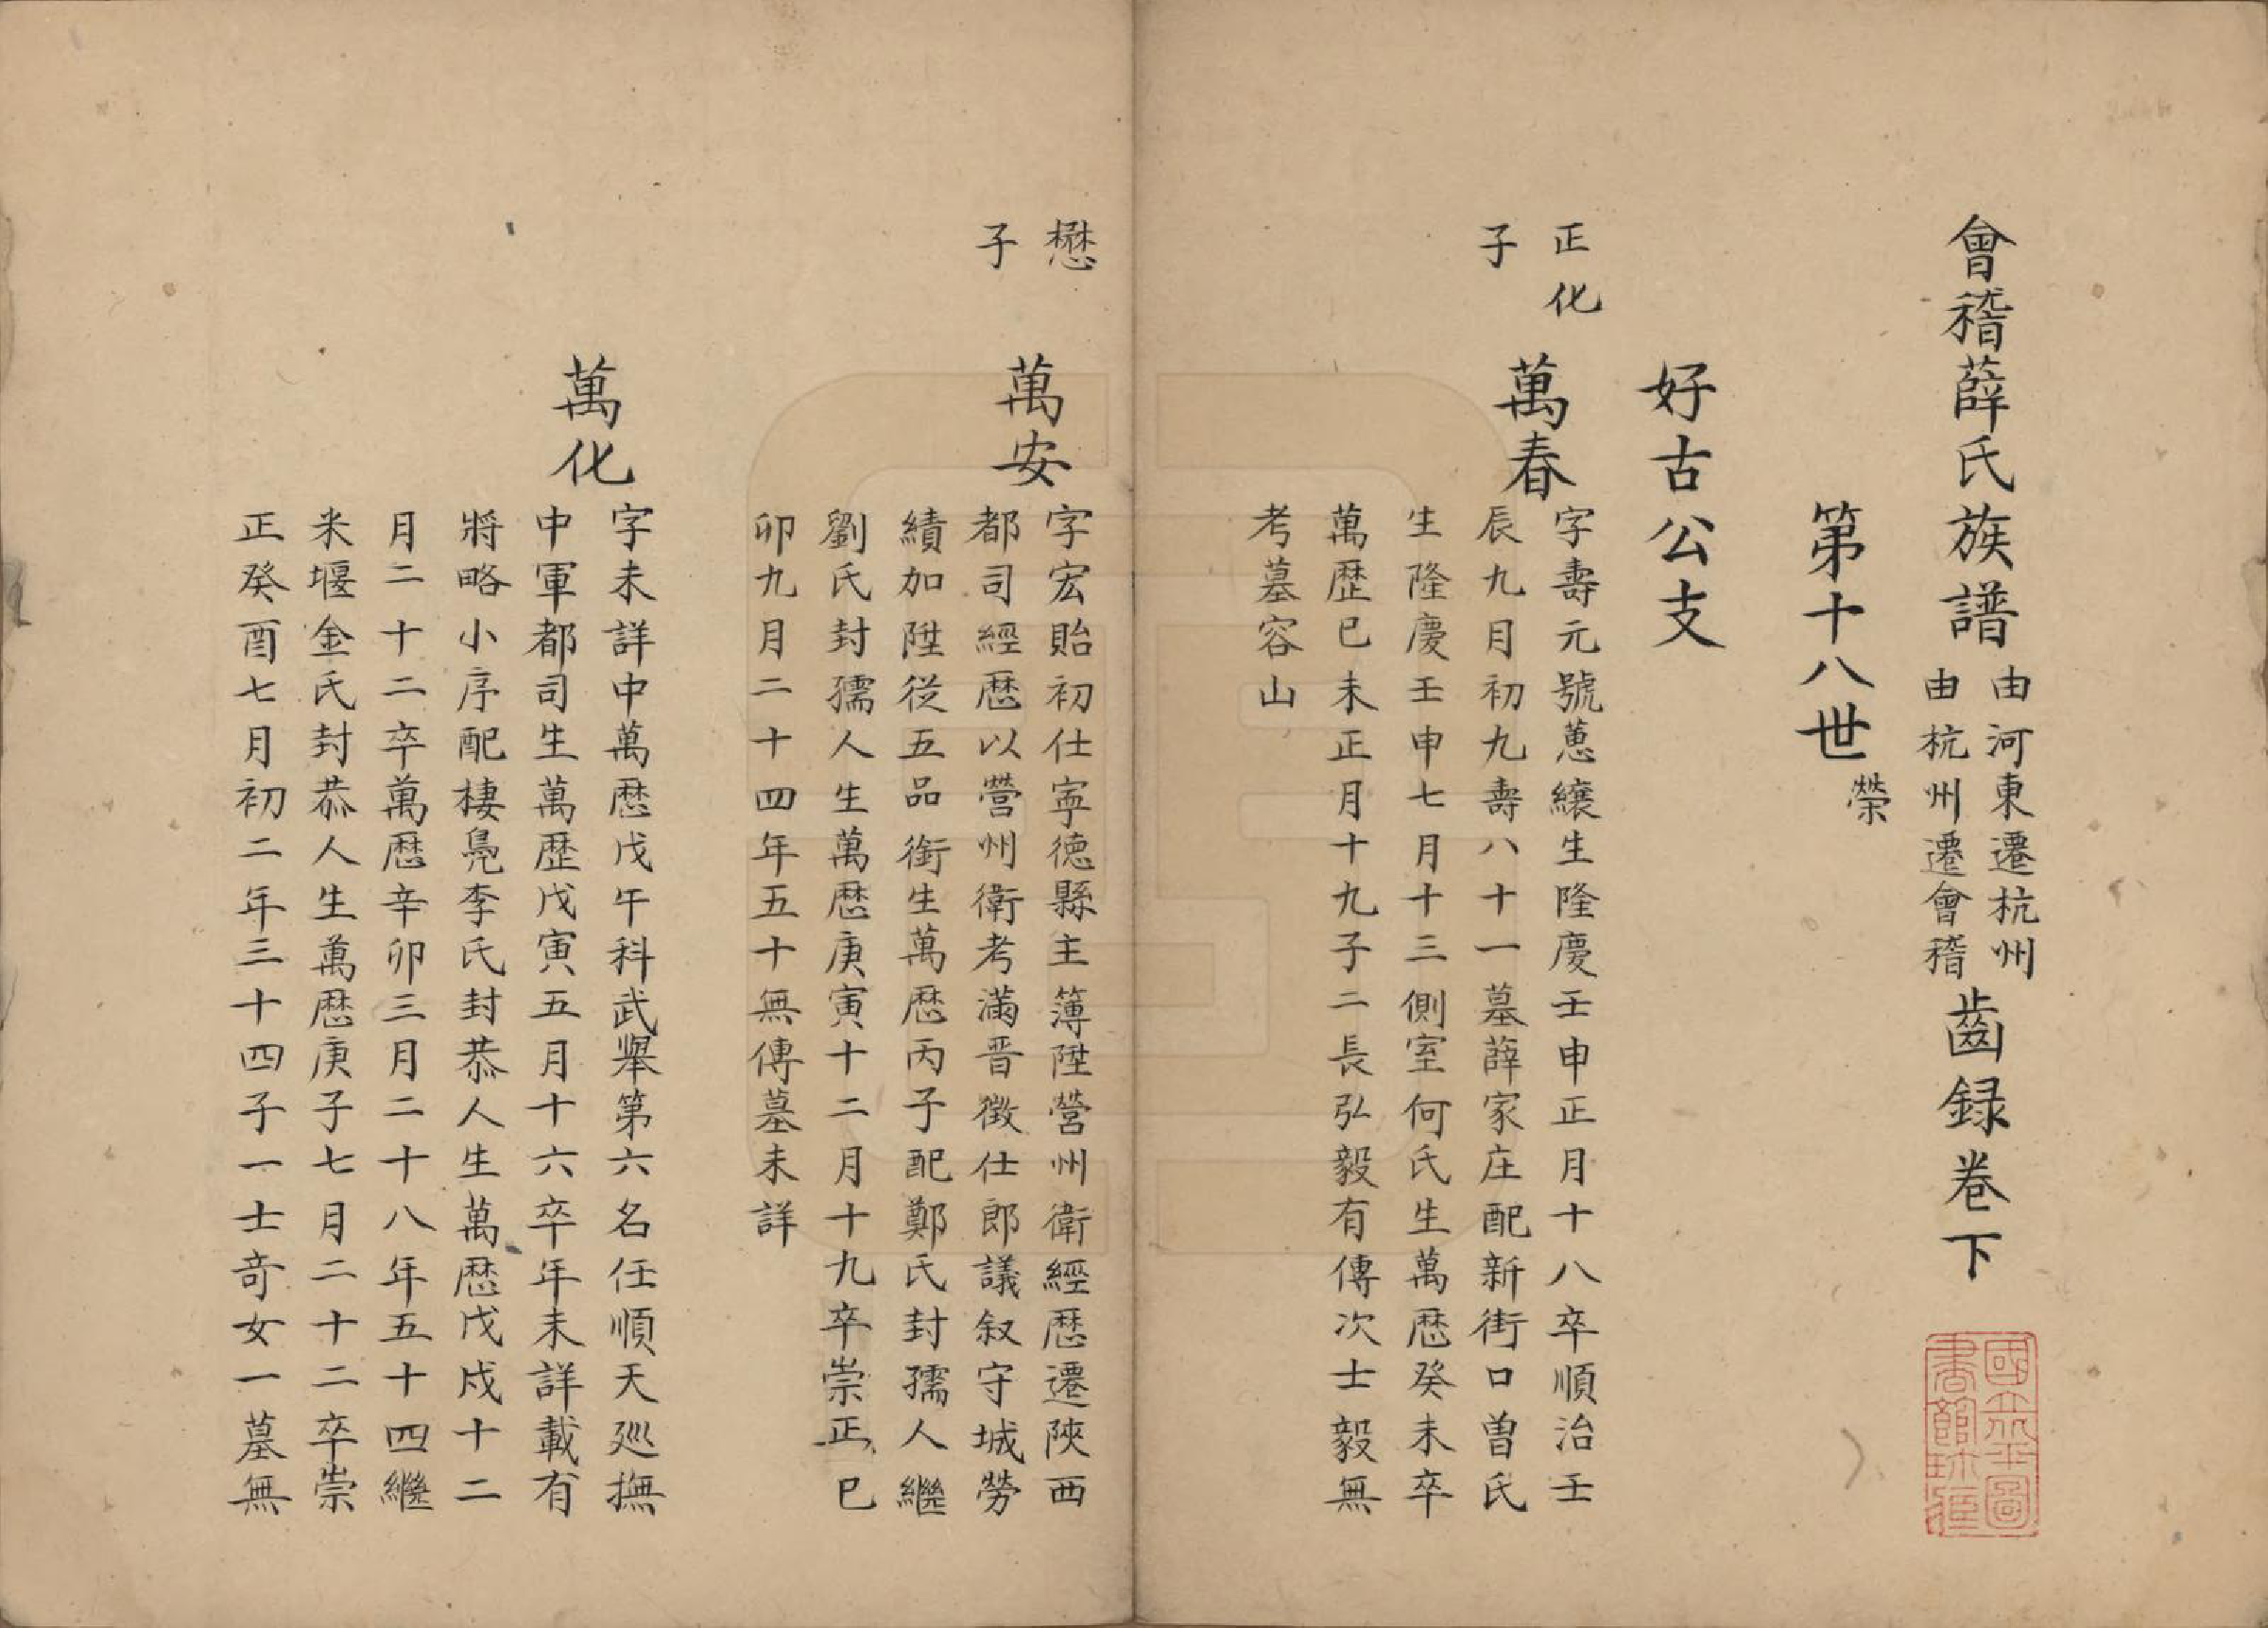 會稽薛氏族譜
由河東遷杭州
由杭州遷會稽
齒録卷下
國立北平圖
書館珍藏
第十八世
榮
好古公支
正化
子
萬春
字壽元號蔥纕生隆慶壬申正月十八卒順治壬
辰九月初九壽八十一墓薛家庄配新街口曽氏
生隆慶壬申七月十三側室何氏生萬厯癸未卒
萬歷已未正月十九子二長弘毅有傳次士毅無
考墓容山
懋
子
萬安
字宏貽初仕寕德縣主簿陞營州衛經歷遷陝西
都司經歷以營州衛考滿晋徵仕郎議叙守城勞
績加陞從五品銜生萬歷丙子配鄭氏封孺人繼
劉氏封孺人生萬歷庚寅十二月十九卒崇正已
卯九月二十四年五十無傳墓未詳
萬化
字未詳中萬歷戊午科武舉第六名任順天廵撫
中軍都司生萬歷戊寅五月十六卒年未詳載有
將略小序配棲鳧李氏封恭人生萬歷戊戌十二
月二十二卒萬歷辛卯三月二十八年五十四繼
米堰金氏封恭人生萬歷庚子七月二十二卒崇
正癸酉七月初二年三十四子一士奇女一墓無